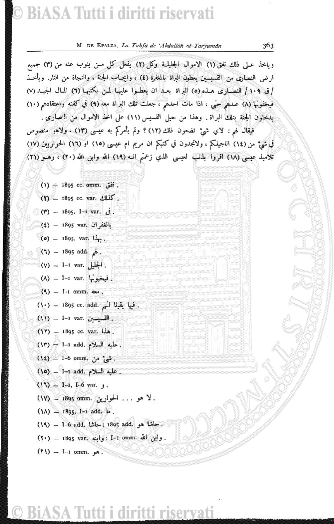 © BiASA Tutti i diritti riservati
M. DE EPALZA, La Tuḥfa de 'Abdallāh al-Tarŷumān 363
وياخذ على ذلك نفق (١) الاموال الجليلة وكل (٢) يفعل كل من ينوب عنه من (٣) جميع
ارض النصارى من القسيسين يعطون البراة بالمغفرة (٤) وايجاب الجنة والنجاة من النار. وياخذ
النصارى هذه (٥) البراة بعد ان يعطوا عليها لمن يكتبها (٦) المال الجيد (٧)
فيحفظونها (٨) عندهم حتى اذا مات احدهم جعلت تلك البراة معه (٩) في كفنه واعتقادهم (١٠)
يدخلون الجنة بتلك البراة. وهذا من حيل القسيس (١١) على اخذ الاموال من النصارى.
فيقال لهم: لاي شيئ تفعلون ذلك (١٢) ؟ ولم يأمركم به عيسى (١٣) ولا هو منصوص
في شيئ من (١٤) اناجيلكم، ولا تجدون في كتبكم ان مريم ام عيسى (١٥) او (١٦) الحواريون (١٧)
تلاميذ عيسى (١٨) اقروا بذنب لعيسى الذي زعمتم انه (١٩) الله وابن الله (٢٠)، وهو (٢١)
(١) — 1895 cc. omm. نفق.
(٢) — 1895 cc. var. كذلك.
(٣) — 1895, I-1 var. في.
(٤) — 1895 var. بالغفران.
(٥) — 1895, var. بهذا.
(٦) — 1895 add. لهم.
(٧) — I-1 var. الجليل.
(٨) — I-1 var. فيخبونها.
(٩) — I-1 omm. معه.
(١٠) — 1895 cc. add. فيها يقينا انهم.
(١١) — I-1 var. القسيسين.
(١٢) — 1895 cc. var. هذا.
(١٣) — I-1 add. عليه السلام.
(١٤) — I-6 omm. شيئ من.
(١٥) — I-1 add. عليه السلام.
(١٦) — I-4, I-6 var. و.
(١٧) — 1895 omm. لا هو ... الحواريين.
(١٨) — 1895, I-1 add. ما.
(١٩) — I-6 add. حاشا ; 1895 add. حاشا هو.
(٢٠) — 1895 var. وابنه ; I-1 omm. وابن الله.
(٢١) — I-1 omm. هو.
© BiASA Tutti i diritti riservati